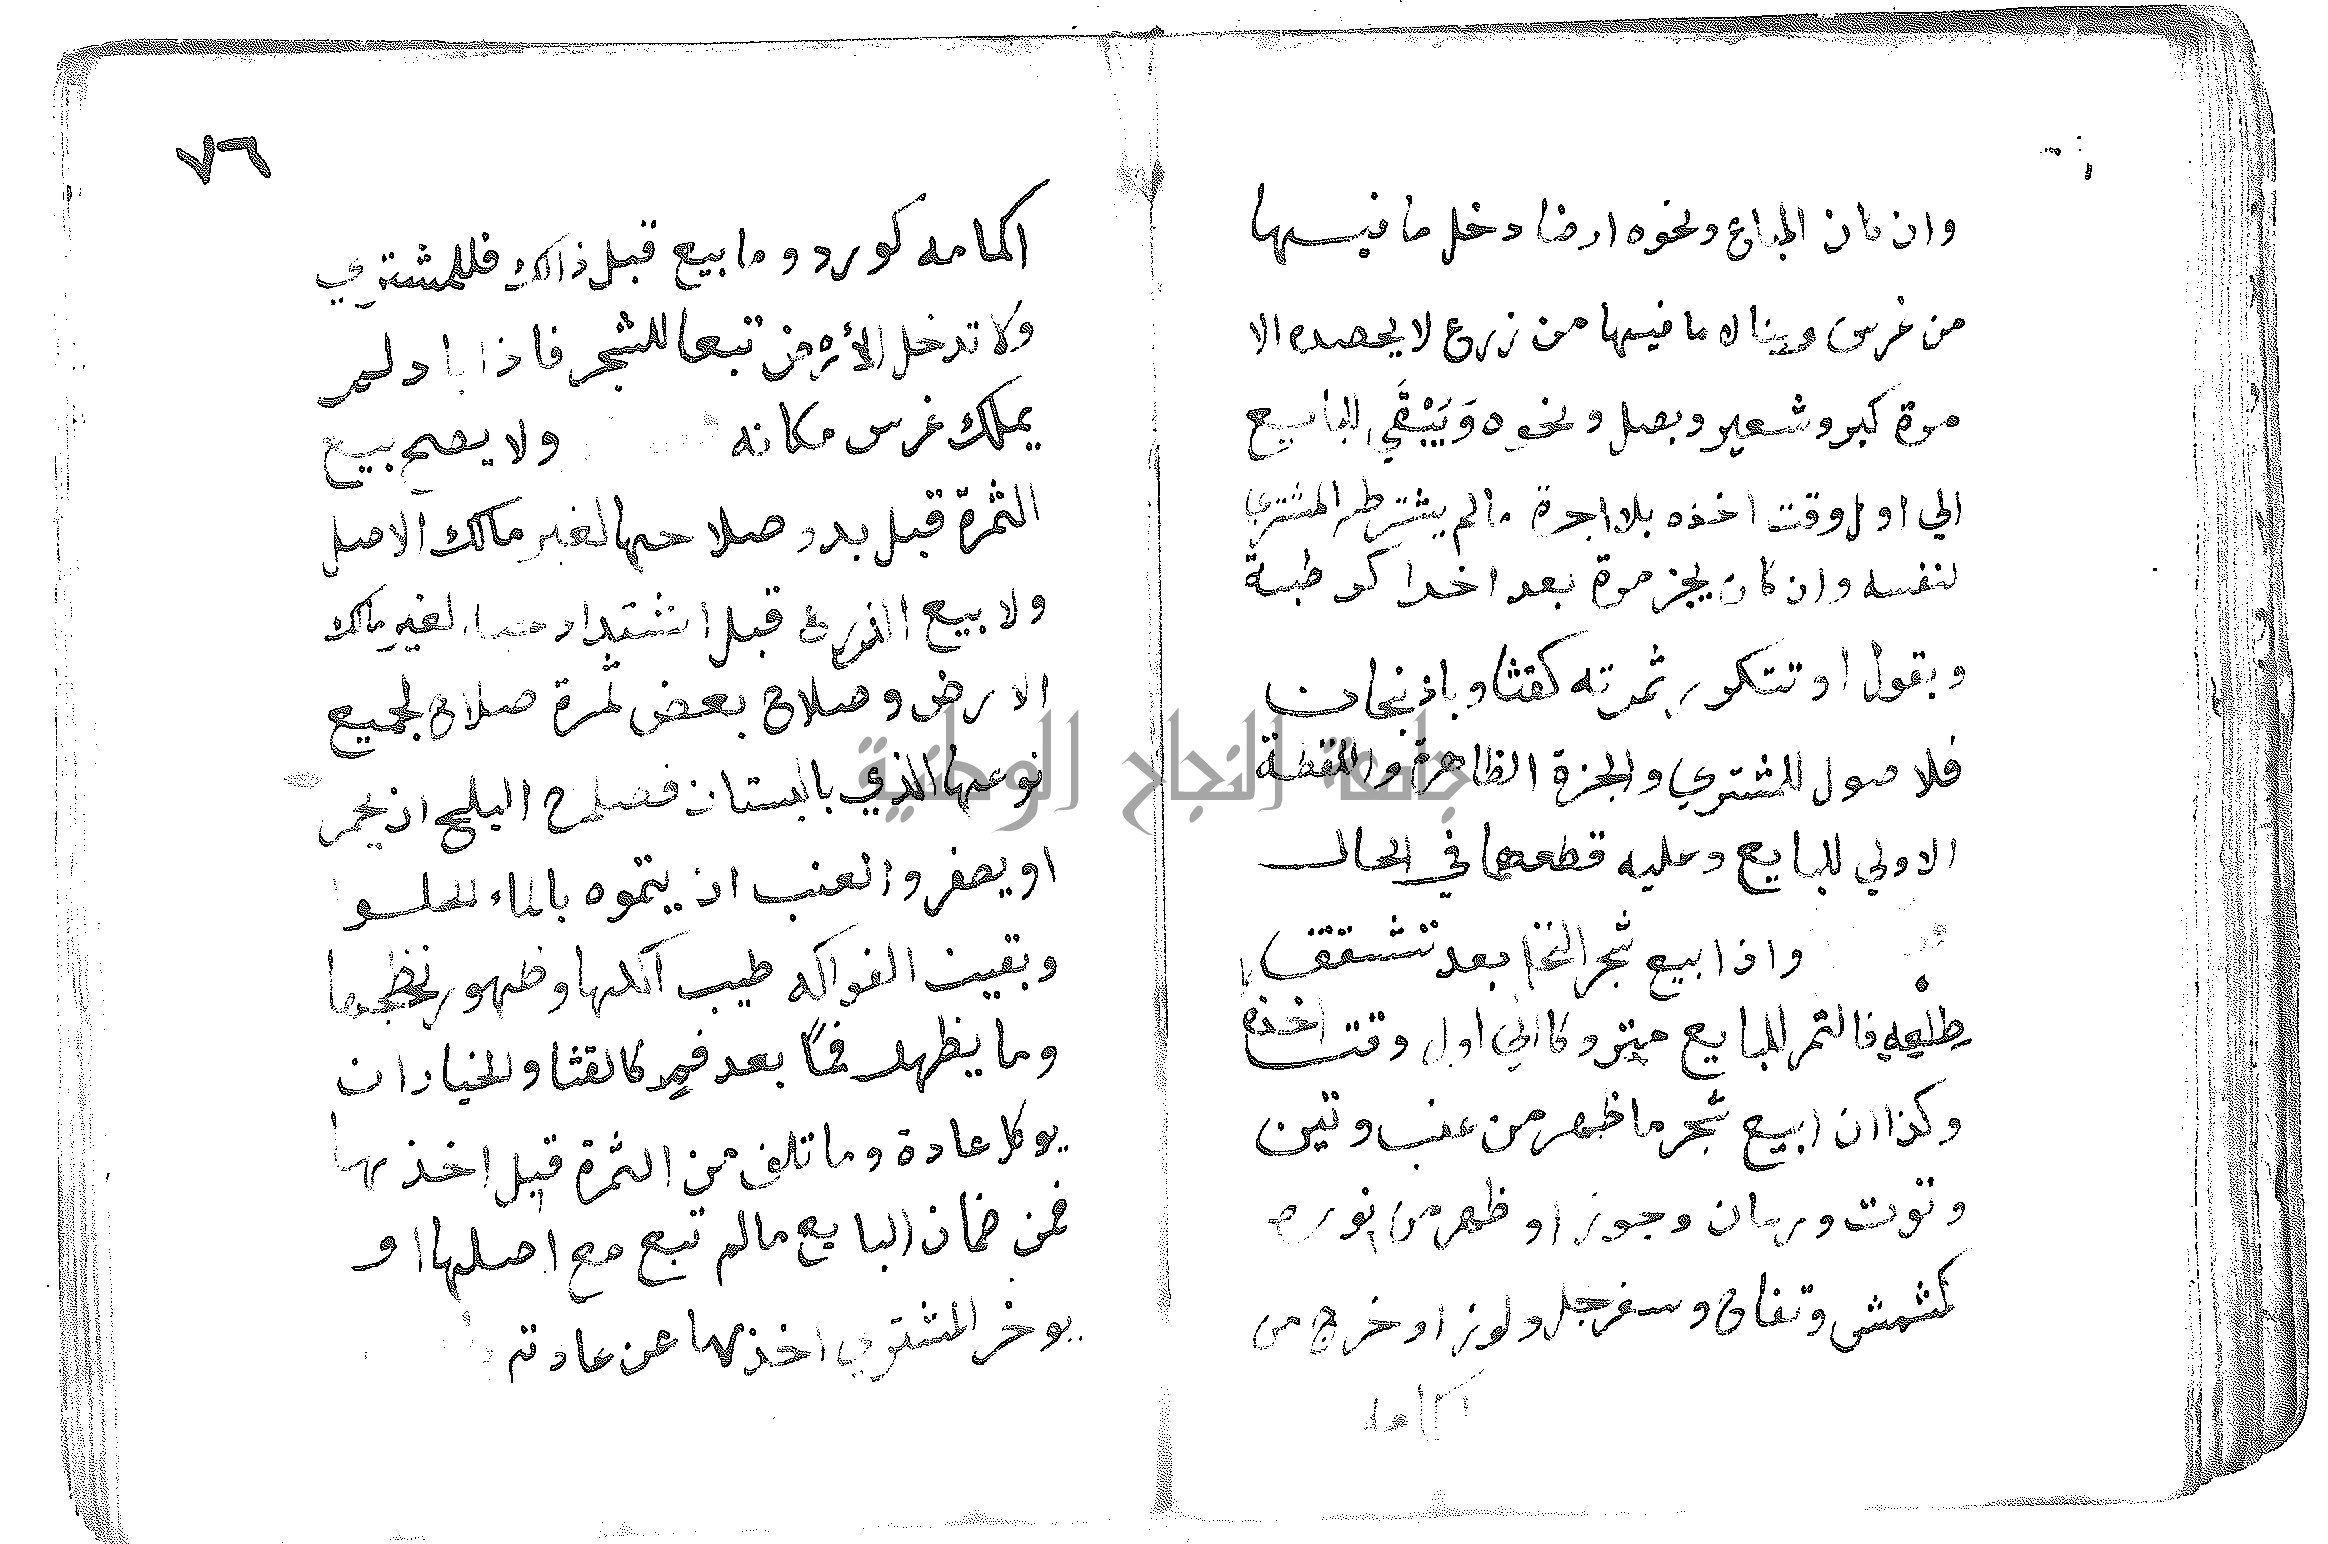 وان كان المباع ونحوه ارضا دخل ما فيها
من غرس وبناء لا ما فيها من زرع لا يحصده الا
مرة كبر وشعير وبصل ونحوه وَيَبْقَي للبايع
الي اول وقت اخذه بلا اجرة ما لم يشترطه المشتري
لنفسه وان كان يجز مرة بعد اخرا كرطبة
وبقول او تتكرر ثمرته كقثا وباذنجان
فلا صول للمشتري والجزة الظاهرة واللقطة
الاولي للبايع وعليه قطعهما في الحال
واذا بيع شجر النخل بعد تشقق
طلعه فالثمر للبايع متروكا الي اول وقت اخذه
وكذا ان ابيع شجر ما ظهر من عنب وتين
وتوت ورمان وجوز او ظهر من نوره
كمشمش وتفاح وسفرجل ولوز او خرج من
اكمامه
٧٦
اكمامه كورد وما بيع قبل ذالك فللمشتري
ولا تدخل الأرض تبعا للشجر فاذا باد لم
يملك غرس مكانه ولا يصح بيع
الثمرة قبل بدو صلاحها لغير مالك الاصل
ولا بيع الزرع قبل اشتداد حبه لغير مالك
الارض وصلاح بعض ثمرة صلاح لجميع
نوعها الذي بالبستان فصلاح البلح ان يحمر
او يصفر والعنب ان يتموه بالماء الحلو
وبقيت الفواكه طيب اكلها وظهور نضجها
وما يظهر فمًا بعد فم كالقثا والخيار ان
يوكل عادة وما تلف من الثمرة قبل اخذها
فمن ضمان البايع مالم تبع مع اصلها او
يوخر المشتري اخذها عن عادته
جامعة النجاح الوطنية